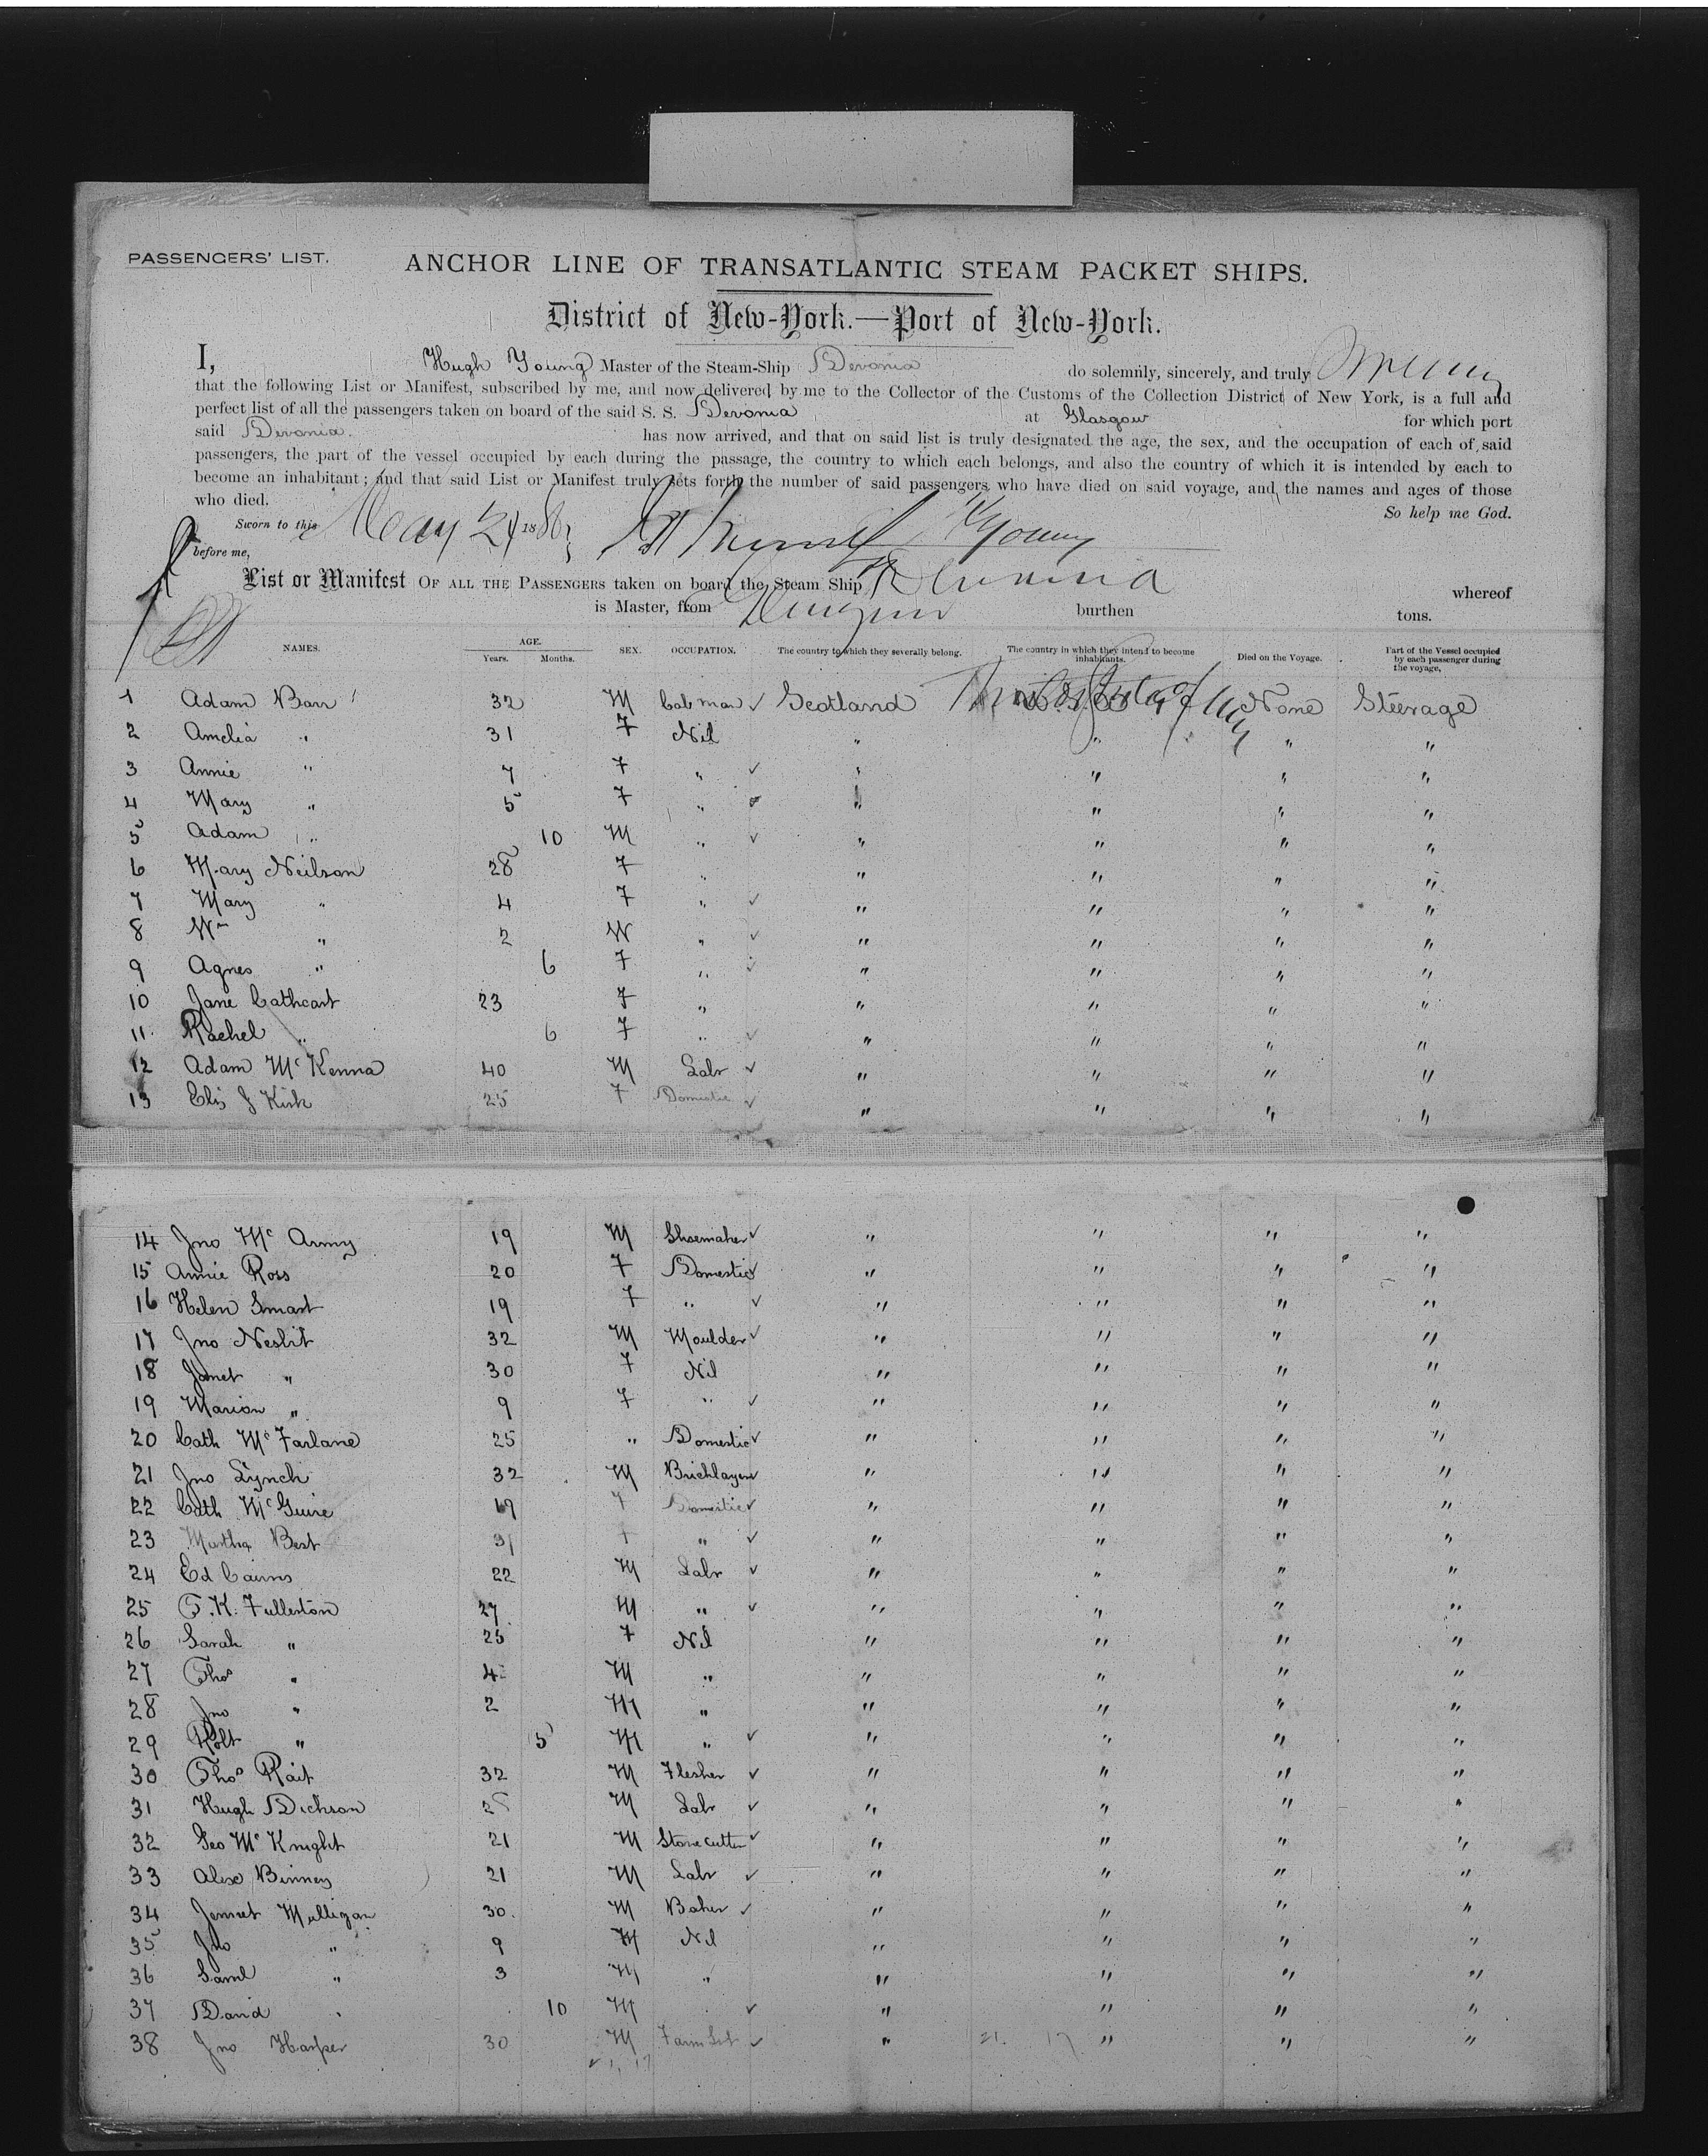 PASSENGERS' LIST.
ANCHOR LINE OF TRANSATLANTIC STEAM PACKET SHIPS.
District of New-York.—Port of New-York.
I, Hugh Young Master of the Steam-Ship Devonia do solemnly, sincerely, and truly
that the following List or Manifest, subscribed by me, and now delivered by me to the Collector of the Customs of the Collection District of New York, is a full and
perfect list of all the passengers taken on board of the said S. S. Devonia at Glasgow for which port
said Devonia. has now arrived, and that on said list is truly designated the age, the sex, and the occupation of each of said
passengers, the part of the vessel occupied by each during the passage, the country to which each belongs, and also the country of which it is intended by each to
become an inhabitant; and that said List or Manifest truly sets forth the number of said passengers who have died on said voyage, and the names and ages of those
who died. So help me God.
Sworn to this May 24 188 Young
before me,
List or Manifest OF ALL THE PASSENGERS taken on board the Steam Ship Devonia whereof
is Master, from Glasgow burthen tons.
NAMES. AGE. Years. Months. SEX. OCCUPATION. The country to which they severally belong. The country in which they intend to become inhabitants. Died on the Voyage. Part of the Vessel occupied by each passenger during the voyage.
1 Adam Barr 32 M Cab man ✓ Scotland United States of None Steerage
2 Amelia " 31 F Nil " " " "
3 Annie " 7 F " ✓ " " " "
4 Mary " 5 F " " " " "
5 Adam " 10 M " ✓ " " " "
6 Mary Neilson 28 F " " " " "
7 Mary " 4 F " ✓ " " " "
8 Wm " 2 M " ✓ " " " "
9 Agnes " 6 F " ✓ " " " "
10 Jane Cathcart 23 F " " " " "
11 Rachel " 6 F " ✓ " " " "
12 Adam McKenna 40 M Labr ✓ " " " "
13 Eliz J Kirk 25 F Domestic ✓ " " " "
14 Jno Mc Army 19 M Shoemaker ✓ " " " "
15 Annie Ross 20 F Domestic ✓ " " " "
16 Helen Smart 19 F " ✓ " " " "
17 Jno Nesbit 32 M Moulder ✓ " " " "
18 Janet " 30 F Nil " " " "
19 Marion " 9 F " ✓ " " " "
20 Cath McFarlane 25 " Domestic ✓ " " " "
21 Jno Lynch 32 M Bricklayer ✓ " " " "
22 Cath McGuire 19 F Domestic ✓ " " " "
23 Martha Best F " ✓ " " " "
24 Ed Cairns 22 M Labr ✓ " " " "
25 T.K. Fullerton 27 M " ✓ " " " "
26 Sarah " 25 F Nil " " " "
27 Thos " 4 M " " " " "
28 Jno " 2 M " " " " "
29 Robt " 5 M " ✓ " " " "
30 Thos Rait 32 M Flesher ✓ " " " "
31 Hugh Dickson M Labr ✓ " " " "
32 Geo McKnight 21 M Stone cutter ✓ " " " "
33 Alex Binney 21 M Labr ✓ " " " "
34 Jennet Mulligan 30 M Baker ✓ " " " "
35 Jno " 9 M Nil " " " "
36 Saml " 3 M " " " " "
37 David " 10 M ✓ " " " "
38 Jno Harper 30 M Farm Svt ✓ " 21. 17 " " "